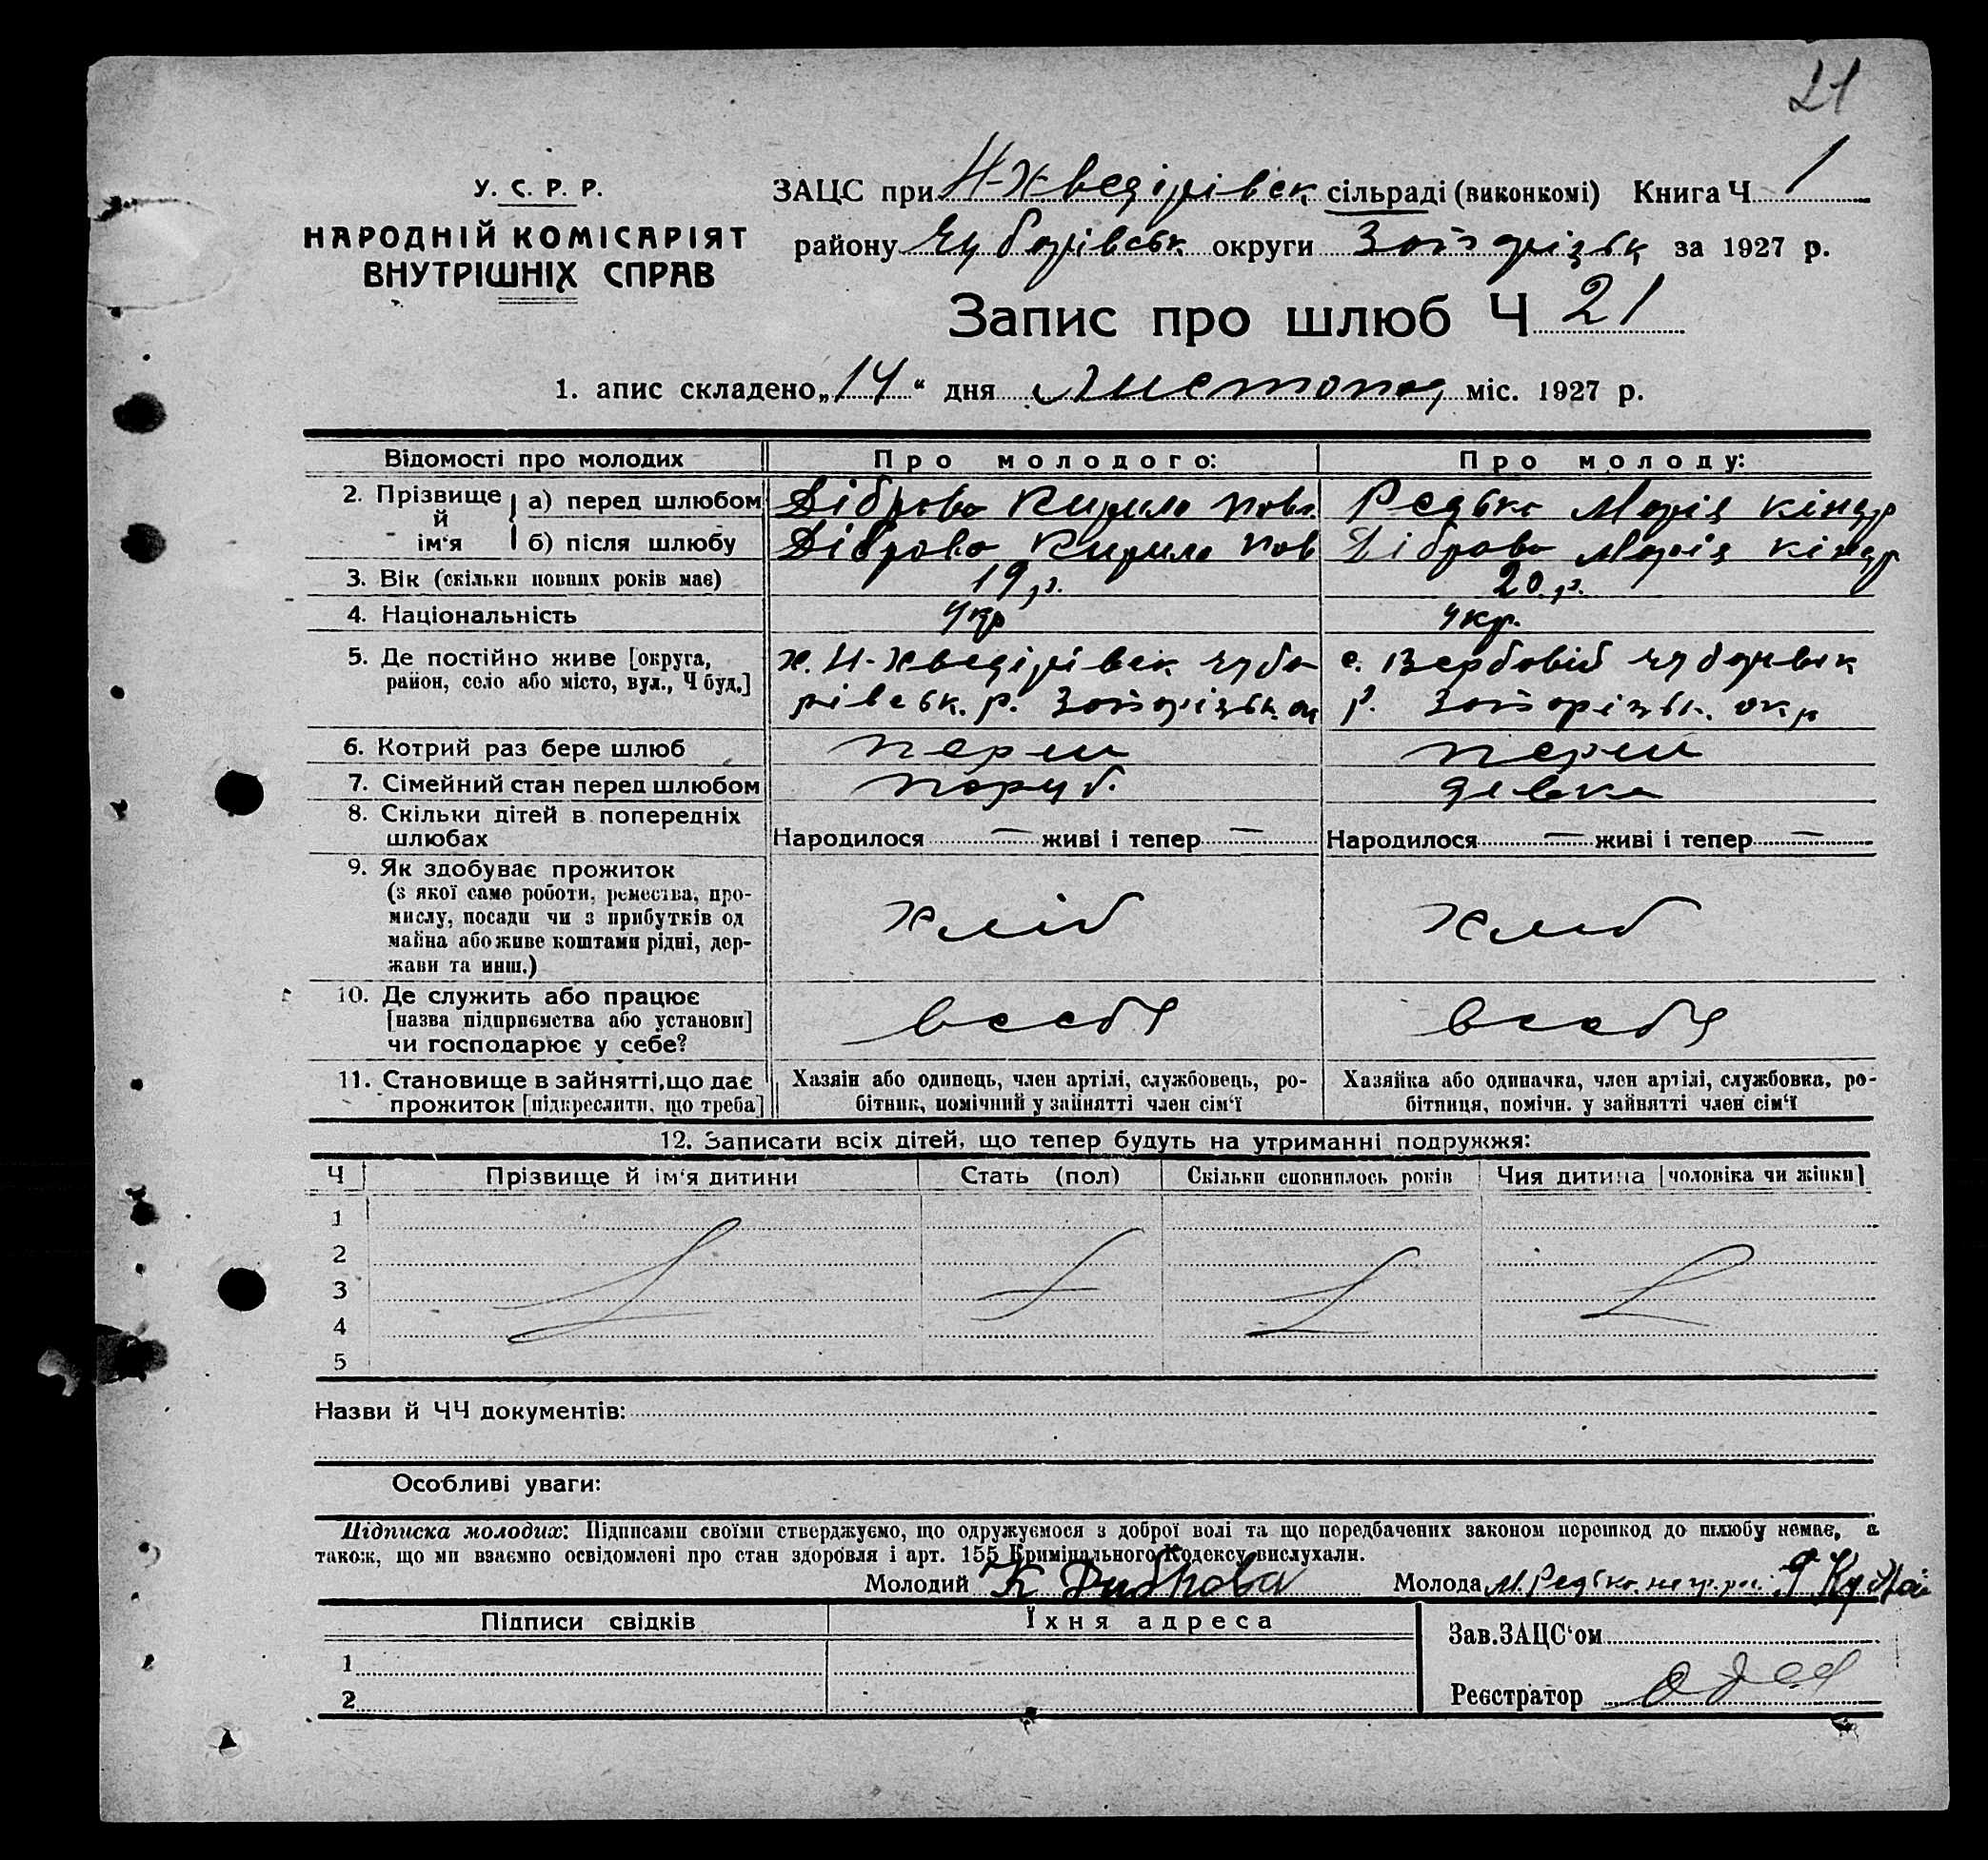 21
У. С. Р. Р.
НАРОДНІЙ КОМІСАРІЯТ
ВНУТРІШНІХ СПРАВ
ЗАЦС при Н-Хведірівськ сільраді (виконкомі) Книга Ч 1
району Чубарівськ округи Запорізьк за 1927 р.
Запис про шлюб Ч 21
1. апис складено „14“ дня Листопад міс. 1927 р.
Відомості про молодих Про молодого: Про молоду:
2. Прізвище й ім‘я а) перед шлюбом Діброва Кирило Павл. Редько Марія Кіндр
б) після шлюбу Діброва Кирило Пав Діброва Марія Кіндр
3. Вік (скільки повних років має) 19 р. 20 р.
4. Національність Укр Укр.
5. Де постійно живе [округа, район, село або місто, вул., Ч буд.]
х. Н-Хведірівск Чуба
рівськ. р. Запорізьк ок
с. Вербовій Чубарівск
р. Запорізьк. окр
6. Котрий раз бере шлюб перш перш
7. Сімейний стан перед шлюбом паруб. дівка
8. Скільки дітей в попередніх шлюбах Народилося — живі і тепер — Народилося — живі і тепер —
9. Як здобуває прожиток
(з якої саме роботи, ремества, про-
мислу, посади чи з прибутків од
майна або живе коштами рідні, дер-
жави та инш.)
хліб хліб
10. Де служить або працює
[назва підприємства або установи]
чи господарює у себе?
в себя в себя
11. Становище в зайнятті, що дає
прожиток [підкреслити, що треба]
Хазяін або одинець, член артілі, службовець, ро-
бітник, помічний у зайнятті член сім‘ї
Хазяйка або одиначка, член артілі, службовка, ро-
бітниця, помічн. у зайнятті член сім‘ї
12. Записати всіх дітей, що тепер будуть на утриманні подружжя:
Ч Прізвище й ім‘я дитини Стать (пол) Скільки сповнилось років Чия дитина [чоловіка чи жінки]
1
2
3
4
5
Назви й ЧЧ документів:
Особливі уваги:
Підписка молодих: Підписами своїми стверджуємо, що одружуємося з доброї волі та що передбачених законом перешкод до шлюбу немає, а
також, що ми взаємно освідомлені про стан здоровля і арт. 155 Кримінального Кодексу вислухали.
Молодий К Диброва Молода М. Редько
Підписи свідків Їхня адреса
1
2
Зав. ЗАЦС‘ом
Реєстратор